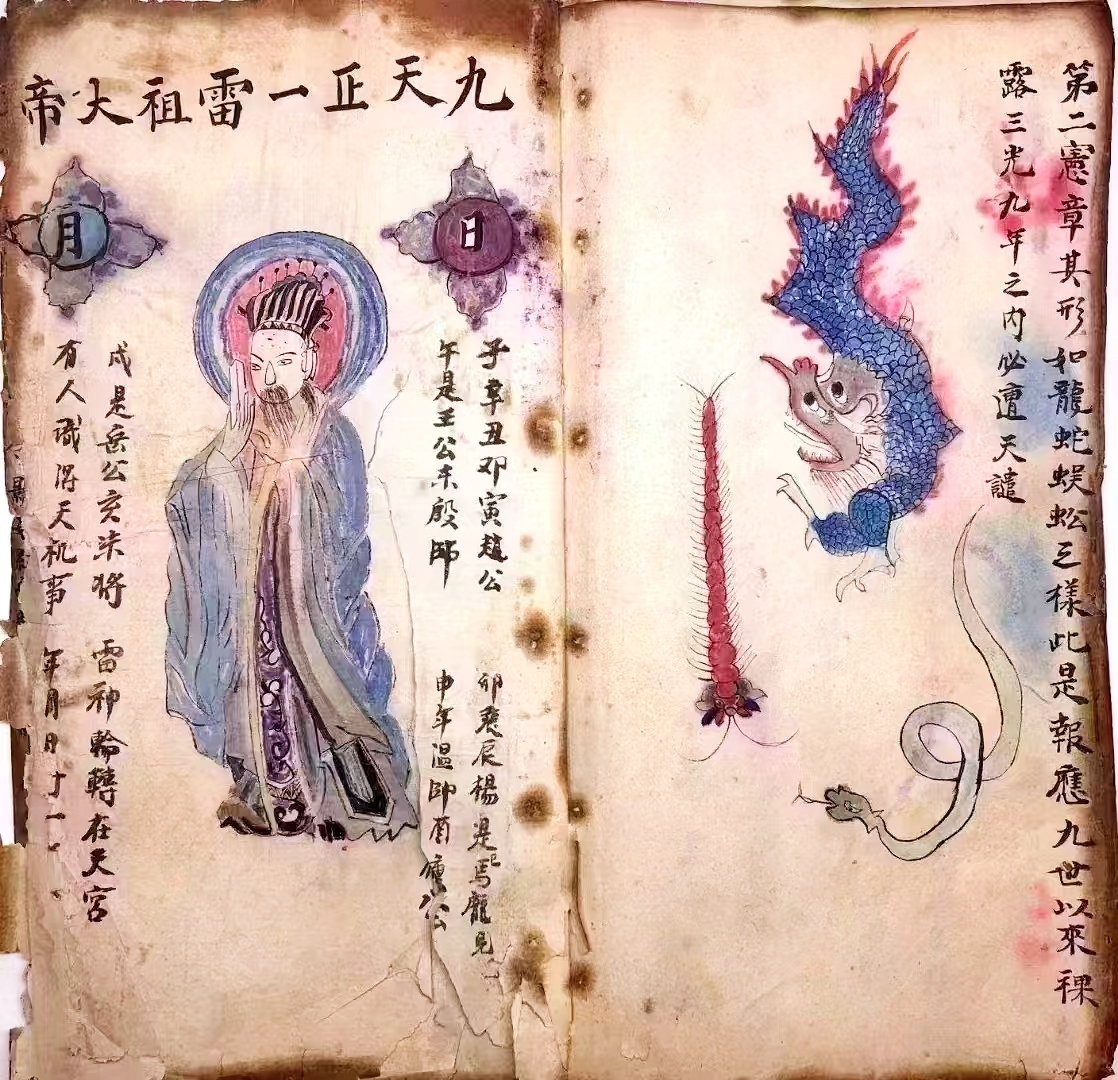 第二憲章其形如龍蛇蜈蚣三樣此是報應九世以來裸
露三光九年之內必遭天譴
九天正一雷祖大帝
日
月
子辛丑邓寅趙公
卯辰楊是馬龍見
午是王公未殷帥
申年温帥酉康公
戌是岳公亥朱将
雷神輪轉在天宮
有人識得天机事
年月日